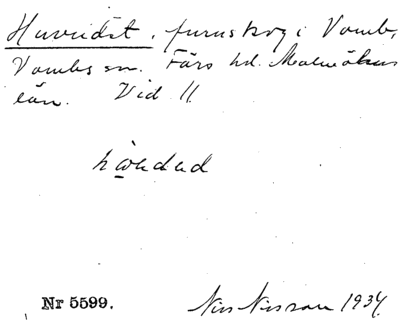 Huvudet, furuskog i Vomb,
Vombs sn. Färs hd. Malmöhus
län. Vid 11.
Nr 5599.
Nils Nilsson 1934.